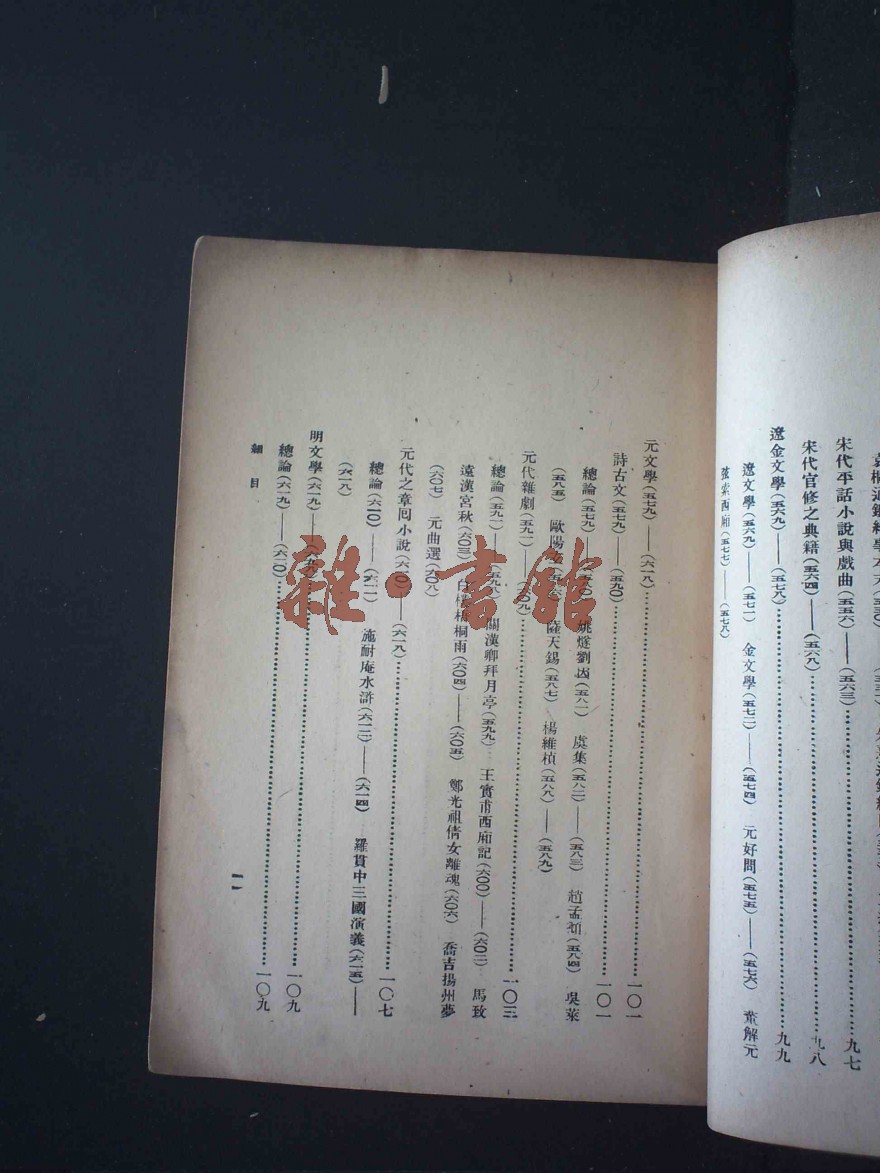 宋代平話小說與戲曲(五五六)——(五六三)……九七
宋代官修之典籍(五六四)——(五六八)……九八
遼金文學(五六九)——(五七八)……九九
遼文學(五六九)——(五七一) 金文學(五七二)——(五七四) 元好問(五七五)——(五七六) 董解元
弦索西廂(五七七)——(五七八)
元文學(五七九)——(六一八)……一〇一
詩古文(五七九)——(五九〇)……一〇一
總論(五七九)——(五八〇) 姚燧劉因(五八一) 虞集(五八二)——(五八三) 趙孟頫(五八四) 吳萊
(五八五) 歐陽 薩天錫(五八七) 楊維楨(五八八)——(五八九)
元代雜劇(五九一)——(六〇九)……一〇三
總論(五九一)——(五九八) 關漢卿拜月亭(五九九) 王實甫西廂記(六〇〇)——(六〇二) 馬致
遠漢宮秋(六〇三) 白樸梧桐雨(六〇四)——(六〇五) 鄭光祖倩女離魂(六〇六) 喬吉揚州夢
(六〇七) 元曲選(六〇八)
元代之章囘小說(六一〇)——(六一八)……一〇七
總論(六一〇)——(六一一) 施耐庵水滸(六一二)——(六一四) 羅貫中三國演義(六一五)——
(六一八)
明文學(六一九)——……一〇九
總論(六一九)——(六二〇)……一〇九
細目
一一
雜·書館